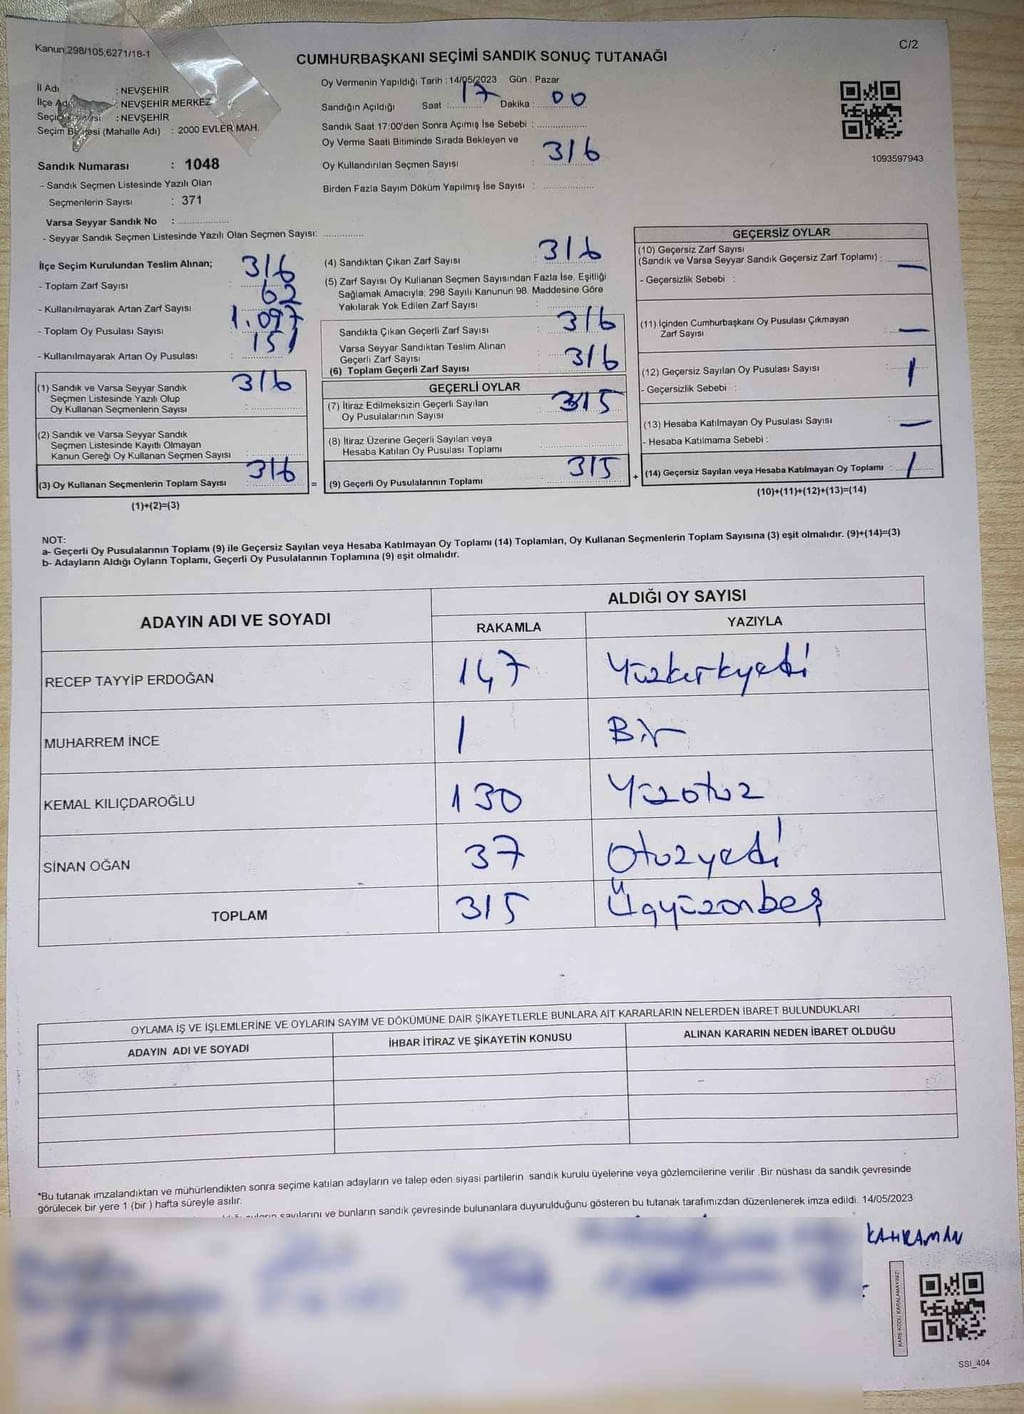 Kanun,298/105,6271/18-1
C/2
CUMHURBAŞKANI SEÇİMİ SANDIK SONUÇ TUTANAĞI
İl Adı : NEVŞEHİR
İlçe Adı : NEVŞEHİR MERKEZ
Seçim : NEVŞEHİR
Seçim Bölgesi (Mahalle Adı) : 2000 EVLER MAH.
Sandık Numarası : 1048
- Sandık Seçmen Listesinde Yazılı Olan
Seçmenlerin Sayısı : 371
Varsa Seyyar Sandık No :
- Seyyar Sandık Seçmen Listesinde Yazılı Olan Seçmen Sayısı:
Oy Vermenin Yapıldığı Tarih : 14/05/2023 Gün : Pazar
Sandığın Açıldığı Saat : 17 Dakika : 00
Sandık Saat 17:00'den Sonra Açımış İse Sebebi :
Oy Verme Saati Bitiminde Sırada Bekleyen ve
Oy Kullandırılan Seçmen Sayısı : 316
Birden Fazla Sayım Döküm Yapılmış İse Sayısı :
1093597943
İlçe Seçim Kurulundan Teslim Alınan;
- Toplam Zarf Sayısı : 316
- Kullanılmayarak Artan Zarf Sayısı : 62
- Toplam Oy Pusulası Sayısı : 1.097
- Kullanılmayarak Artan Oy Pusulası : 151
(1) Sandık ve Varsa Seyyar Sandık
Seçmen Listesinde Yazılı Olup
Oy Kullanan Seçmenlerin Sayısı : 316
(2) Sandık ve Varsa Seyyar Sandık
Seçmen Listesinde Kayıtlı Olmayan
Kanun Gereği Oy Kullanan Seçmen Sayısı :
(3) Oy Kullanan Seçmenlerin Toplam Sayısı : 316
(1)+(2)=(3)
(4) Sandıktan Çıkan Zarf Sayısı : 316
(5) Zarf Sayısı Oy Kullanan Seçmen Sayısından Fazla İse, Eşitliği
Sağlamak Amacıyla; 298 Sayılı Kanunun 98. Maddesine Göre
Yakılarak Yok Edilen Zarf Sayısı :
Sandıkta Çıkan Geçerli Zarf Sayısı : 316
Varsa Seyyar Sandıktan Teslim Alınan
Geçerli Zarf Sayısı :
(6) Toplam Geçerli Zarf Sayısı : 316
GEÇERLİ OYLAR
(7) İtiraz Edilmeksizin Geçerli Sayılan
Oy Pusulalarının Sayısı : 315
(8) İtiraz Üzerine Geçerli Sayılan veya
Hesaba Katılan Oy Pusulası Toplamı :
= (9) Geçerli Oy Pusulalarının Toplamı : 315
GEÇERSİZ OYLAR
(10) Geçersiz Zarf Sayısı
(Sandık ve Varsa Seyyar Sandık Geçersiz Zarf Toplamı) : —
- Geçersizlik Sebebi :
(11) İçinden Cumhurbaşkanı Oy Pusulası Çıkmayan
Zarf Sayısı : —
(12) Geçersiz Sayılan Oy Pusulası Sayısı : 1
- Geçersizlik Sebebi :
(13) Hesaba Katılmayan Oy Pusulası Sayısı : —
- Hesaba Katılmama Sebebi :
+ (14) Geçersiz Sayılan veya Hesaba Katılmayan Oy Toplamı : 1
(10)+(11)+(12)+(13)=(14)
NOT:
a- Geçerli Oy Pusulalarının Toplamı (9) ile Geçersiz Sayılan veya Hesaba Katılmayan Oy Toplamı (14) Toplamları, Oy Kullanan Seçmenlerin Toplam Sayısına (3) eşit olmalıdır. (9)+(14)=(3)
b- Adayların Aldığı Oyların Toplamı, Geçerli Oy Pusulalarının Toplamına (9) eşit olmalıdır.
ADAYIN ADI VE SOYADI
ALDIĞI OY SAYISI
RAKAMLA YAZIYLA
RECEP TAYYİP ERDOĞAN 147 Yüzkırkyedi
MUHARREM İNCE 1 Bir
KEMAL KILIÇDAROĞLU 130 Yüzotuz
SİNAN OĞAN 37 Otuzyedi
TOPLAM 315 Üçyüzonbeş
OYLAMA İŞ VE İŞLEMLERİNE VE OYLARIN SAYIM VE DÖKÜMÜNE DAİR ŞİKAYETLERLE BUNLARA AİT KARARLARIN NELERDEN İBARET BULUNDUKLARI
ADAYIN ADI VE SOYADI İHBAR İTİRAZ VE ŞİKAYETİN KONUSU ALINAN KARARIN NEDEN İBARET OLDUĞU
*Bu tutanak imzalandıktan ve mühürlendikten sonra seçime katılan adayların ve talep eden siyasi partilerin sandık kurulu üyelerine veya gözlemcilerine verilir .Bir nüshası da sandık çevresinde
görülecek bir yere 1 (bir ) hafta süreyle asılır.
sayılarını ve bunların sandık çevresinde bulunanlara duyurulduğunu gösteren bu tutanak tarafımızdan düzenlenerek imza edildi. 14/05/2023
KAHRAMAN
KARE KODU KARALAMAYINIZ!
SSI_404